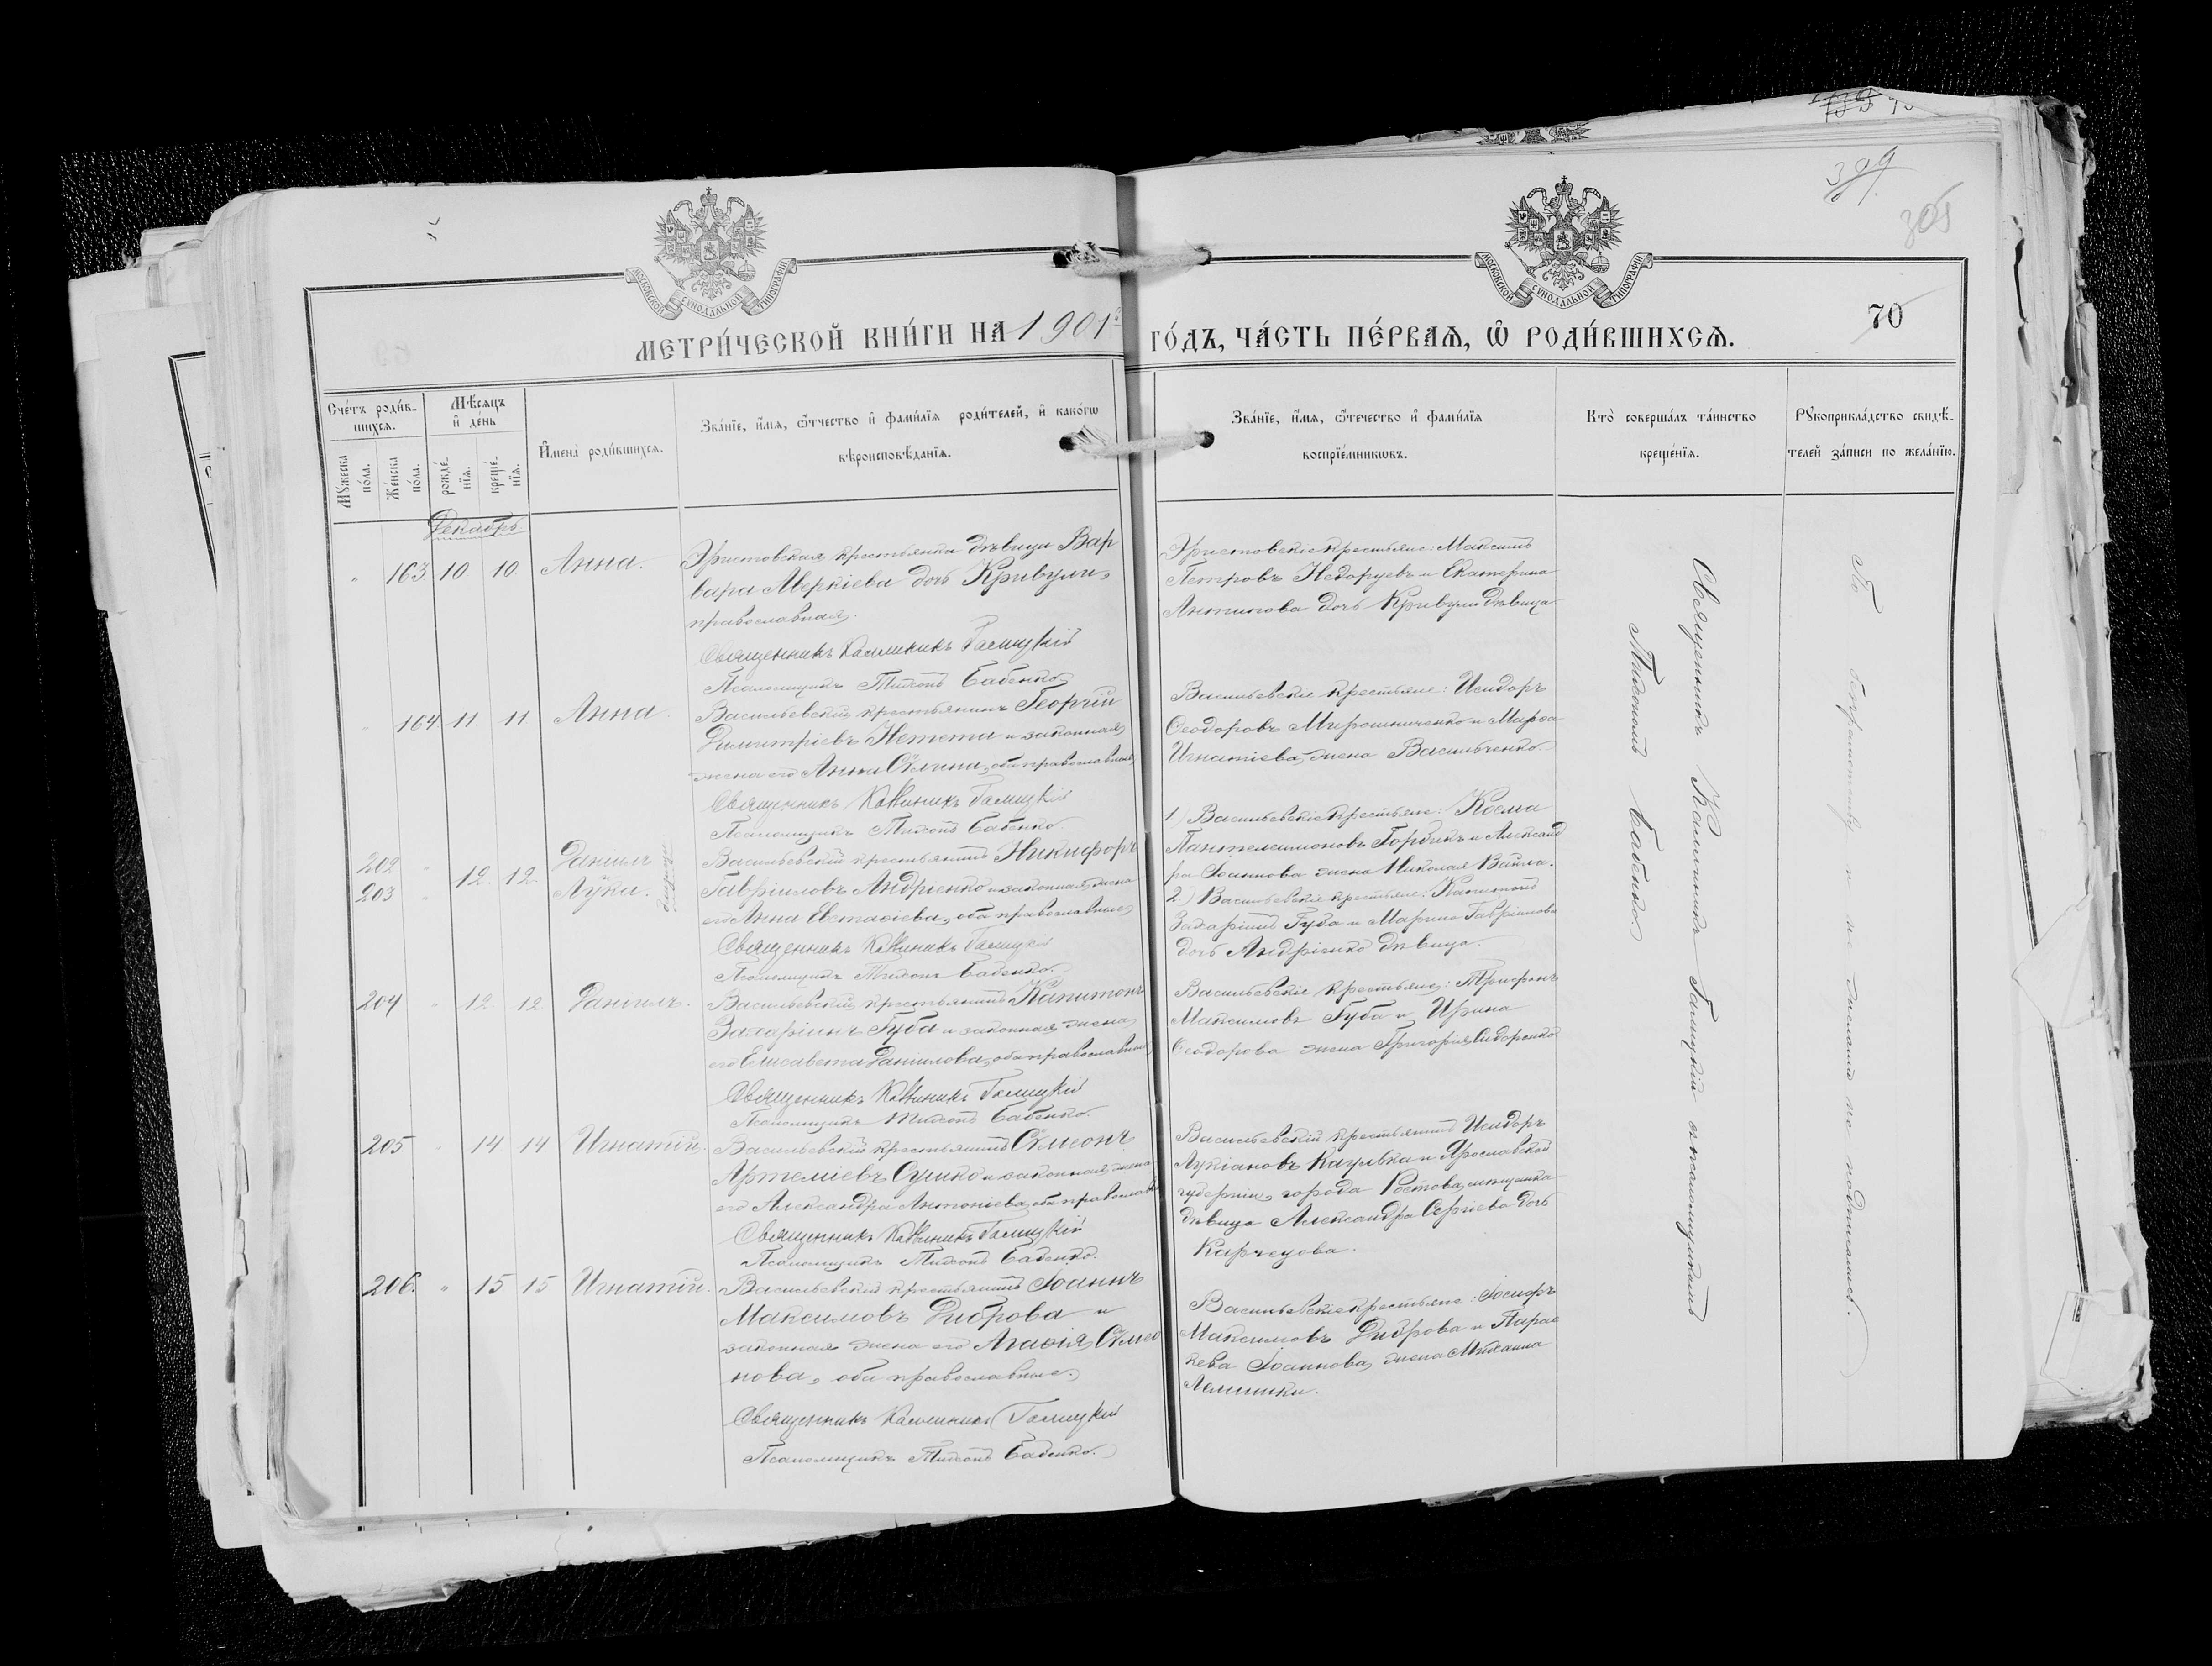 399
305
МОСКОВСКОЙ СѴНОДАЛЬНОЙ ТИПОГРАФІИ
МОСКОВСКОЙ СѴНОДАЛЬНОЙ ТИПОГРАФІИ
МЕТРИ́ЧЕСКОЙ КНИ́ГИ НА 1901 ГО́ДЪ, ЧА́СТЬ ПЕ́РВАѦ, Ѿ РОДИ́ВШИХСѦ.
70
Сче́тъ роди́в-
шихсѧ.
Мѣ́сѧцъ
и҆ де́нь
Мꙋжеска по́ла.
Же́нска по́ла.
рожде́-
нїѧ.
креще́-
нїѧ.
И҆мена̀ роди́вшихсѧ.
Зва́нїе, и҆́мѧ, ѻ҆́тчество и҆ фами́лїѧ роди́телей, и҆ како́гѡ
вѣроисповѣ́данїѧ.
Зва́нїе, и҆́мѧ, ѻ҆́течество и҆ фами́лїѧ
воспрїе́мникѡвъ.
Кто̀ соверша́лъ та́инство
креще́нїѧ.
Рꙋкоприкла́дство свидѣ́-
телей за́писи по жела́нїю.
Декабрь
" 163 10 10 Анна.
Христовская крестьянка дѣвица Вар
вара Аверкіева дочь Кривули,
православная.
Священникъ Каллиникъ Галицкій
Псаломщикъ Тихонъ Бабенко
Христовскіе крестьяне: Максимъ
Петровъ Недоруевъ и Екатерина
Антипова дочь Кривули дѣвица.
164 11. 11 Анна
Васильевскій крестьянинъ Георгій
Димитріевъ Нетета и законная
жена его Анна, оба православные
Священникъ Каллиникъ Галицкій
Псаломщикъ Тихонъ Бабенко
Васильевскіе крестьяне: Исидоръ
Ѳеодоровъ Мирошниченко и Марѳа
Игнатіева, жена Васильченко.
202 12 12 Даніилъ
203 Лука.
близнецы
Васильевскій крестьянинъ Никифоръ
Гавріиловъ Андріенко и законная жена
его Анна Евстаѳіева, оба православные
Священникъ Каллиникъ Галицкій
Псаломщикъ Тихонъ Бабенко.
1) Васильевскіе крестьяне: Косма
Пантелеимоновъ Гордикъ и Александ
ра Іоаннова жена Николая Вайла.
2) Васильевскіе крестьяне: Капитонъ
Захаріинъ Губа и Марина Гавріилова
дочь Андріенко дѣвица.
204 " 12 12 Даніилъ.
Васильевскій крестьянинъ Капитонъ
Захаріинъ Губа и законная жена
его Елисавета Даніилова, оба православные
Священникъ Каллиникъ Галицкій
Псаломщикъ Тихонъ Бабенко.
Васильевскіе крестьяне: Трифонъ
Максимовъ Губа и Ирина
Ѳеодорова жена Григорія Сидоренко
205 " 14 14 Игнатій.
Васильевскій крестьянинъ Сѵмеонъ
Артеміевъ Сушко и законная жена
его Александра Антоніева, оба православные
Священникъ Каллиникъ Галицкій
Псаломщикъ Тихонъ Бабенко.
Васильевскій крестьянинъ Исидоръ
Лукіановъ и Ярославской
губерніи, города Ростова, мѣщанка
дѣвица Александра Сергіева дочь
206. " 15 15 Игнатій.
Васильевскій крестьянинъ Іоаннъ
Максимовъ Диброва и
законная жена его Агаѳія Сѵмео
нова, оба православные.
Священникъ Каллиникъ Галицкій
Псаломщикъ Тихонъ Бабенко.
Васильевскіе крестьяне: Іосифъ
Максимовъ Диброва и Парас
кева Іоаннова, жена Михаила
Священникъ Каллиникъ Галицкій съ псаломщикомъ
Тихономъ Бабенко.
По безграмотству и не писали и не подписались.